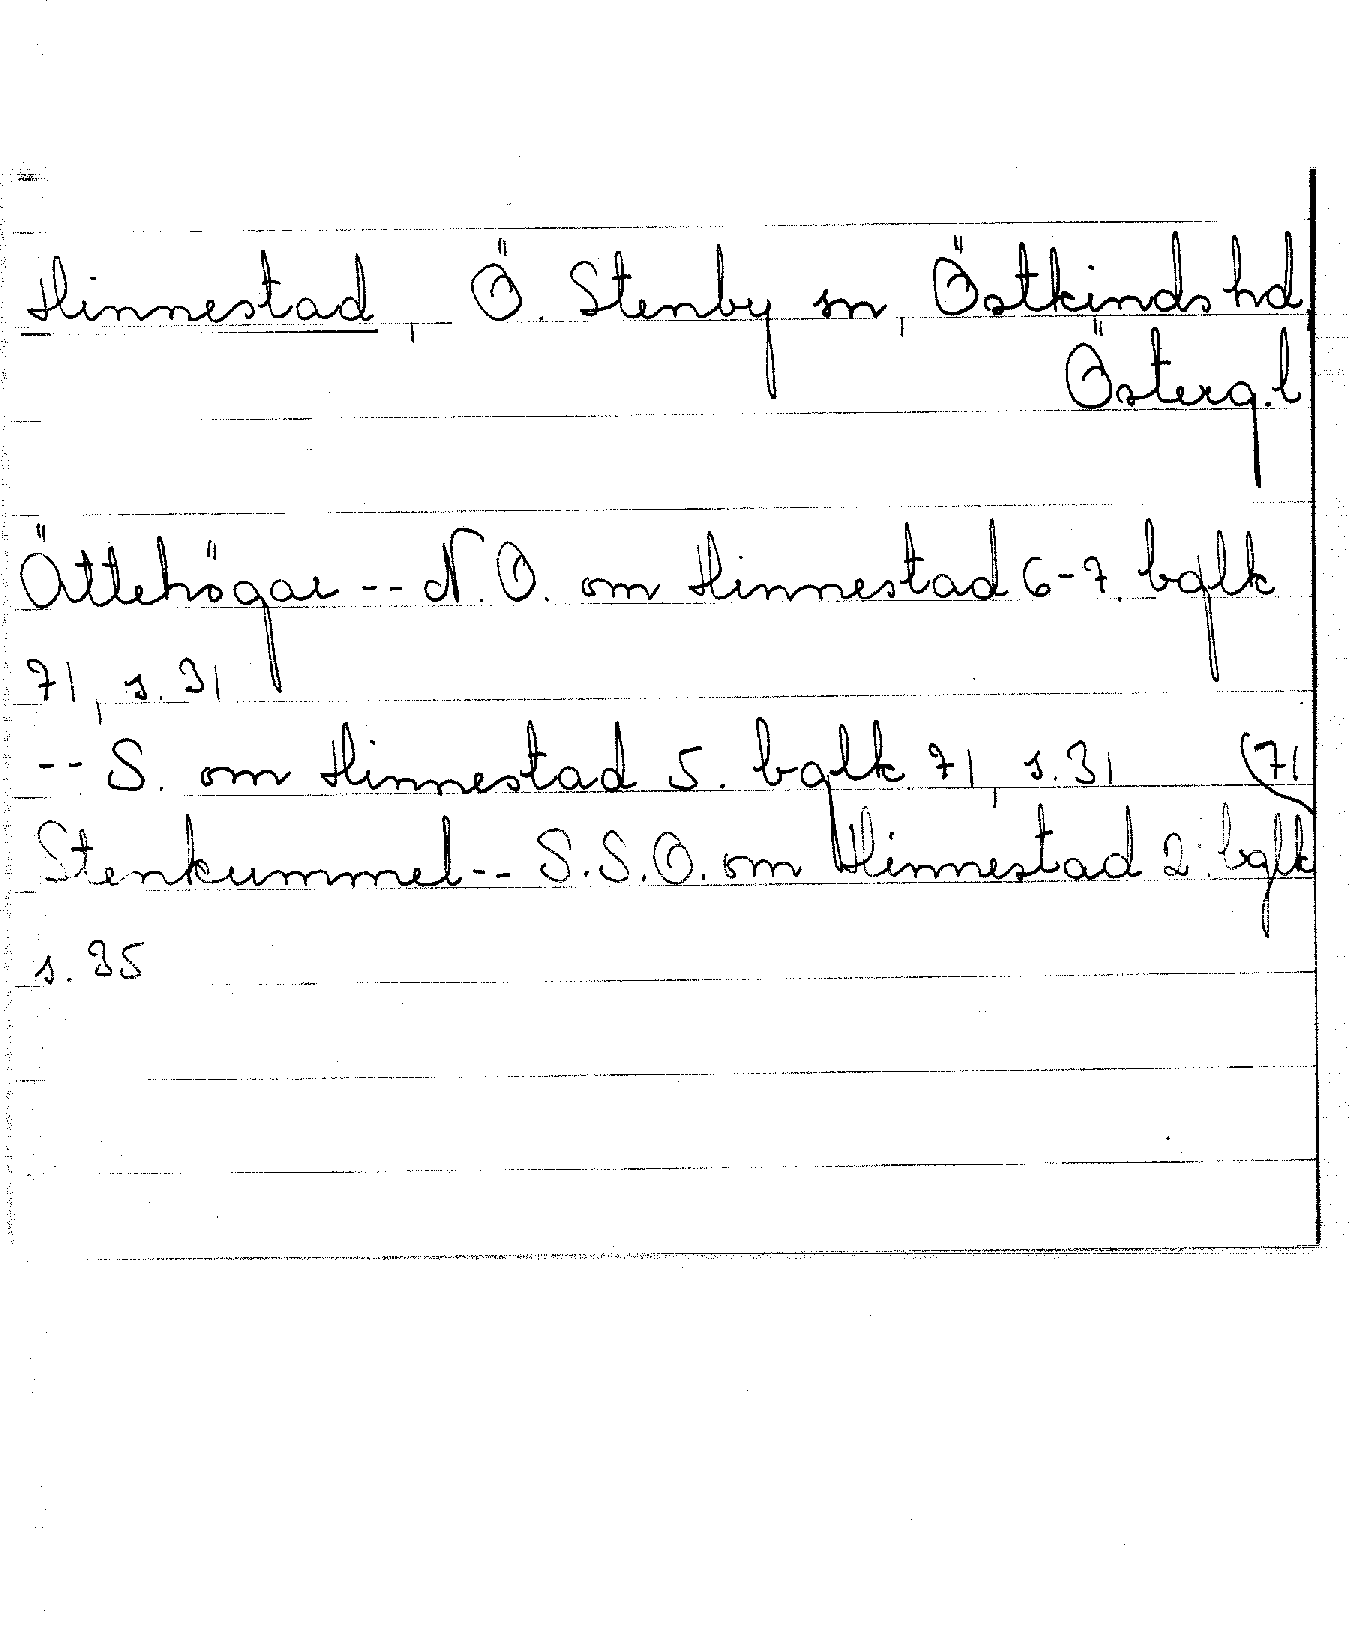 Hinnestad, Ö. Stenby sn, Östkinds hd,
Österg.l
Ättehögar -- N.O. om Hinnestad 6-7. bglk
71, s. 31
-- S. om Hinnestad 5. bglk 71, s. 31 (71
Stenkummel -- S.S.O. om Hinnestad 2. bglk
s. 35